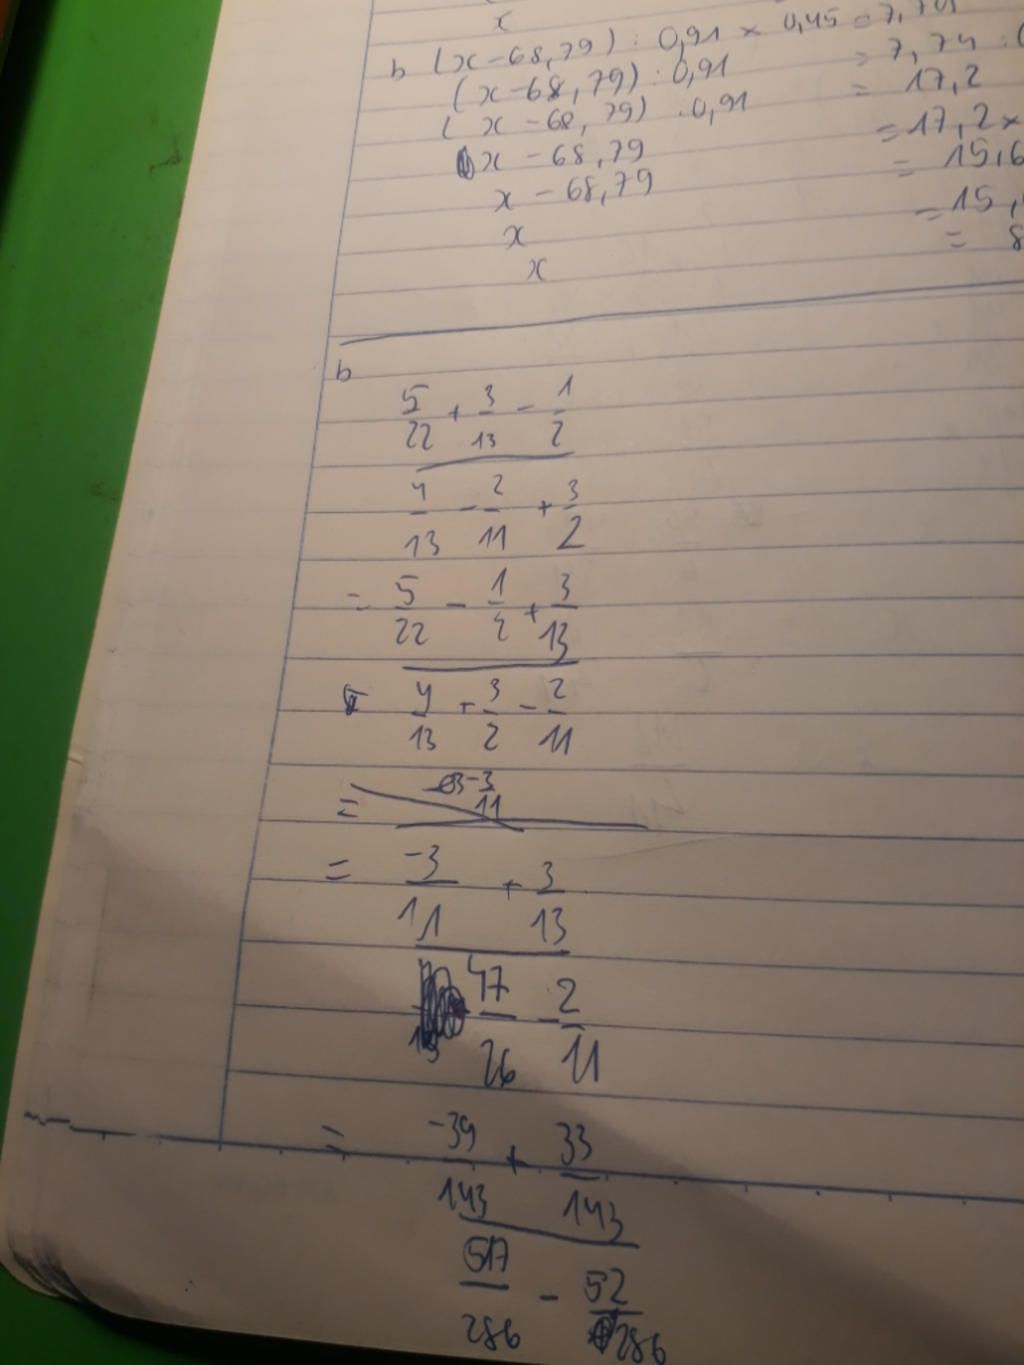 x
b (x - 68,79) : 0,91 × 0,45 = 7,74
(x - 68,79) : 0,91 = 7,74 :
(x - 68,79) : 0,91 = 17,2
x - 68,79 = 17,2 ×
x - 68,79 = 15,6
x = 15,
x = 8
b
5/22 + 3/13 - 1/2
4/13 - 2/11 + 3/2
= 5/22 - 1/2 + 3/13
4/13 + 3/2 - 2/11
=
-3
11
= -3/11 + 3/13
47/26 - 2/11
= -39/143 + 33/143
517/286 - 52/286